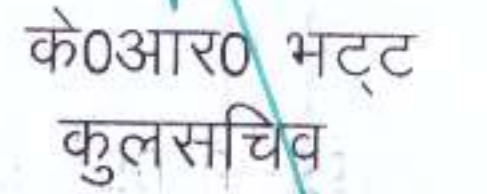 के0आर0 भट्ट
कुलसचिव